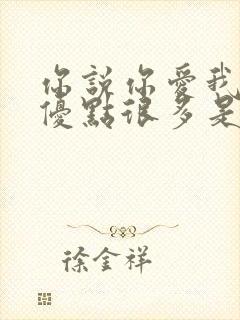 你說你愛我
優點很多是
徐金祥